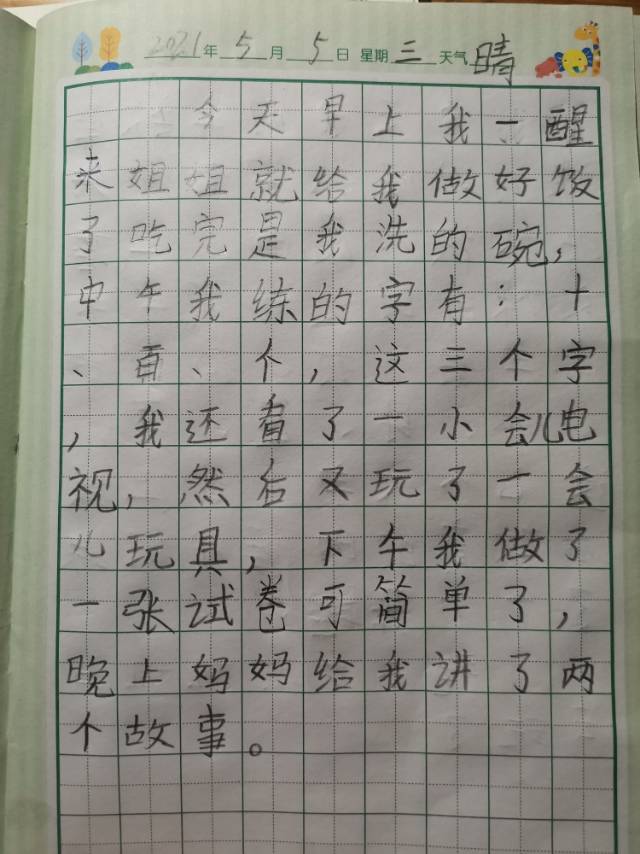 2021年5月5日 星期三 天气 晴
今天早上我一醒
来姐姐就给我做好饭
了吃完是我洗的碗，
中午我练的字有：十
、百、个，这三个字
，我还看了一小会儿电
视，然后又玩了一会
儿玩具，下午我做了
一张试卷可简单了，
晚上妈妈给我讲了两
个故事。